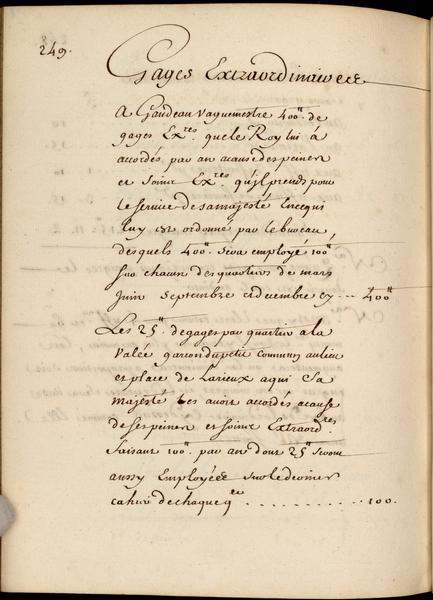 249.
Gages Extraordinaires
A Gaudeau vaguemestre 400ᴴ. de
gages Ex.res que le Roy lui á
accordés par an acause des peines
et soins Ex.res qu'il prend pour
le service de sa majesté En ce qui
luy est ordonné par le bureau
desquels 400ᴴ. sera employé 100ᴴ
sur chacun des quartiers de mars
Juin septembre et decembre cy ... 400ᴴ
Les 25ᴴ. de gages par quartier a la
Valée garcon du petit commun au lieu
et place de Larieux a qui Sa
majesté Les avoit accordés acause
de ses peines et soins Extraord.res
faisant 100ᴴ. par an dont 25ᴴ seront
aussy Employées sur le dernier
cahier de chaque q.er ............ 100.